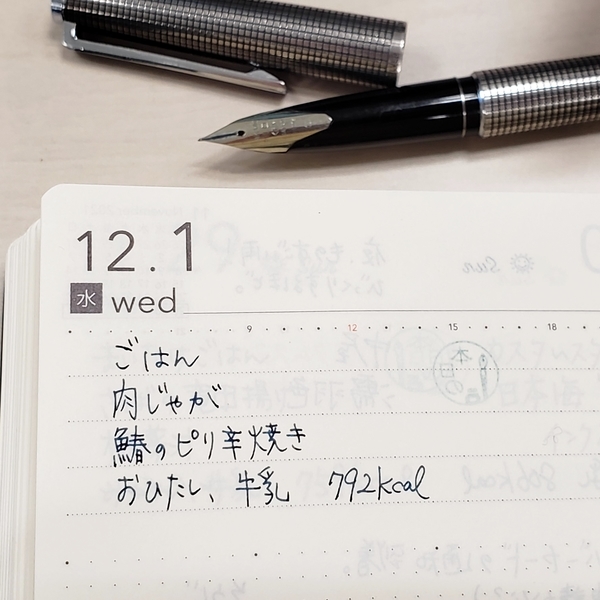 12.1
水 wed
9 12 15 18
本日の
ごはん
肉じゃが
鰆のピリ辛焼き
おひたし、牛乳 792kcal